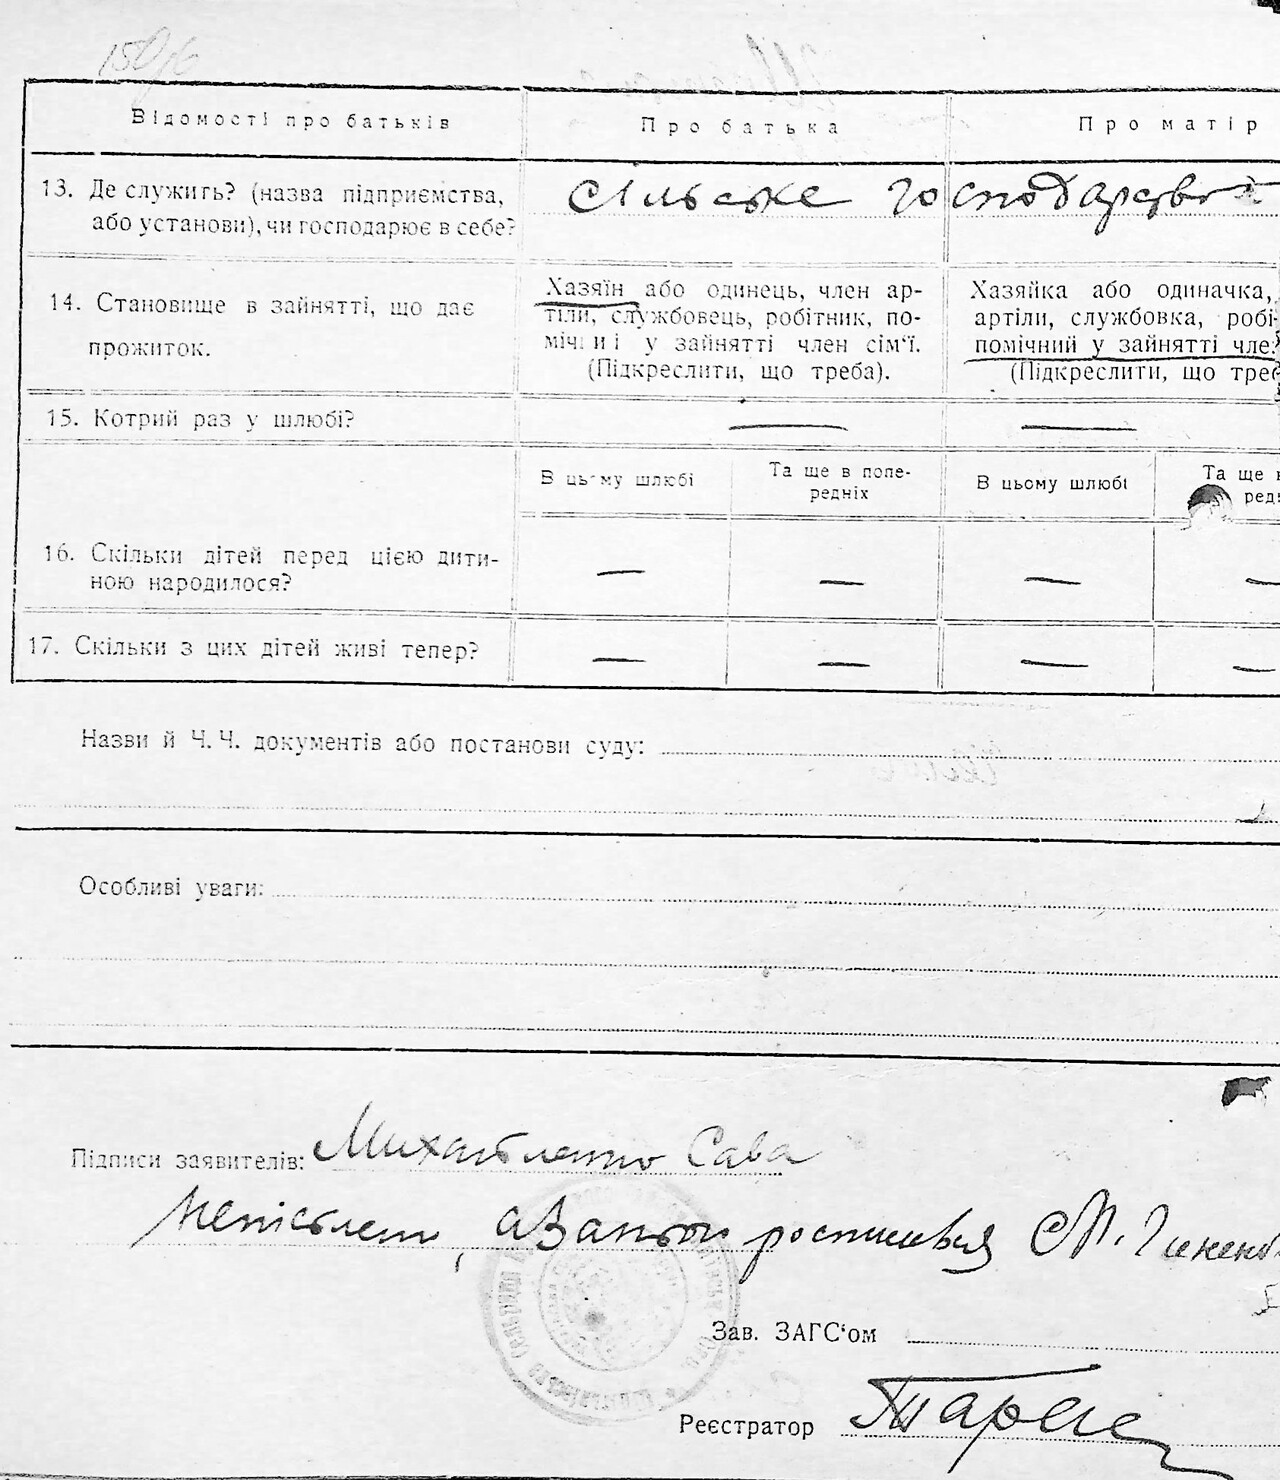 150
Відомості про батьків
Про батька
Про матір
13. Де служить? (назва підприємства,
або установи), чи господарює в себе?
сільське господарство
14. Становище в зайнятті, що дає
прожиток.
Хазяїн або одинець, член ар-
тіли, службовець, робітник, по-
мічний у зайнятті член сім'ї.
(Підкреслити, що треба).
Хазяйка або одиначка,
артіли, службовка, робі-
помічний у зайнятті чле
(Підкреслити, що тре
15. Котрий раз у шлюбі?
— —
В цьому шлюбі
Та ще в попе-
редніх
В цьому шлюбі
Та ще
ред
16. Скільки дітей перед цією дити-
ною народилося?
— — — —
17. Скільки з цих дітей живі тепер?
— — — —
Назви й Ч. Ч. документів або постанови суду:
Особливі уваги:
Підписи заявителів: Михайленко Сава
Зав. ЗАГС'ом
Реєстратор